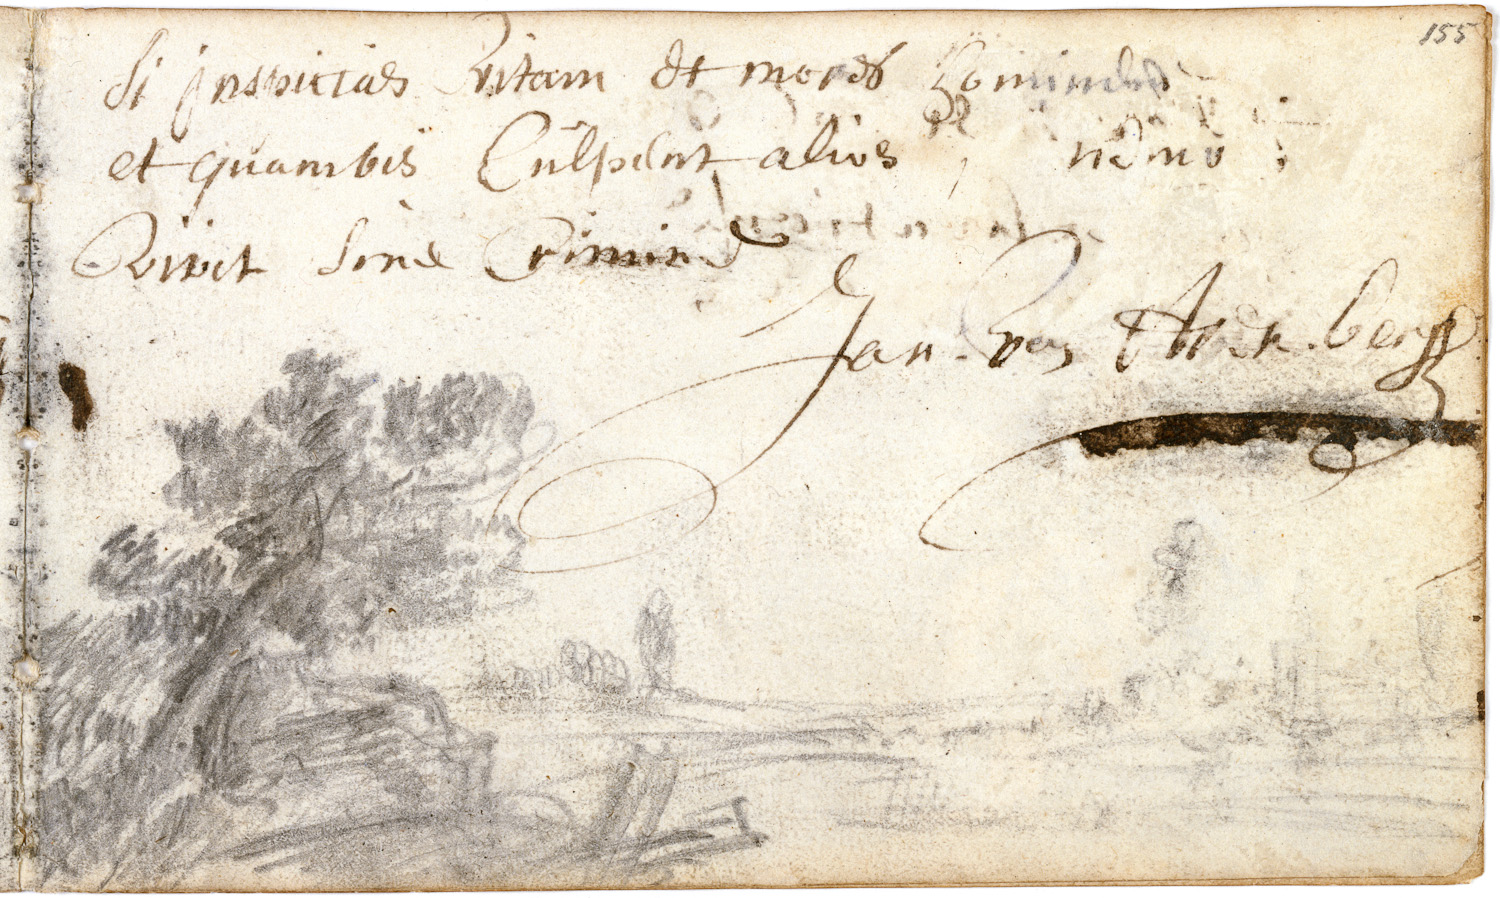 155
Si jnspicias Vitam et mores hominum
et quambis Culpent alios, nemo
Vivit sine Crimine
Jan van Arden.berg